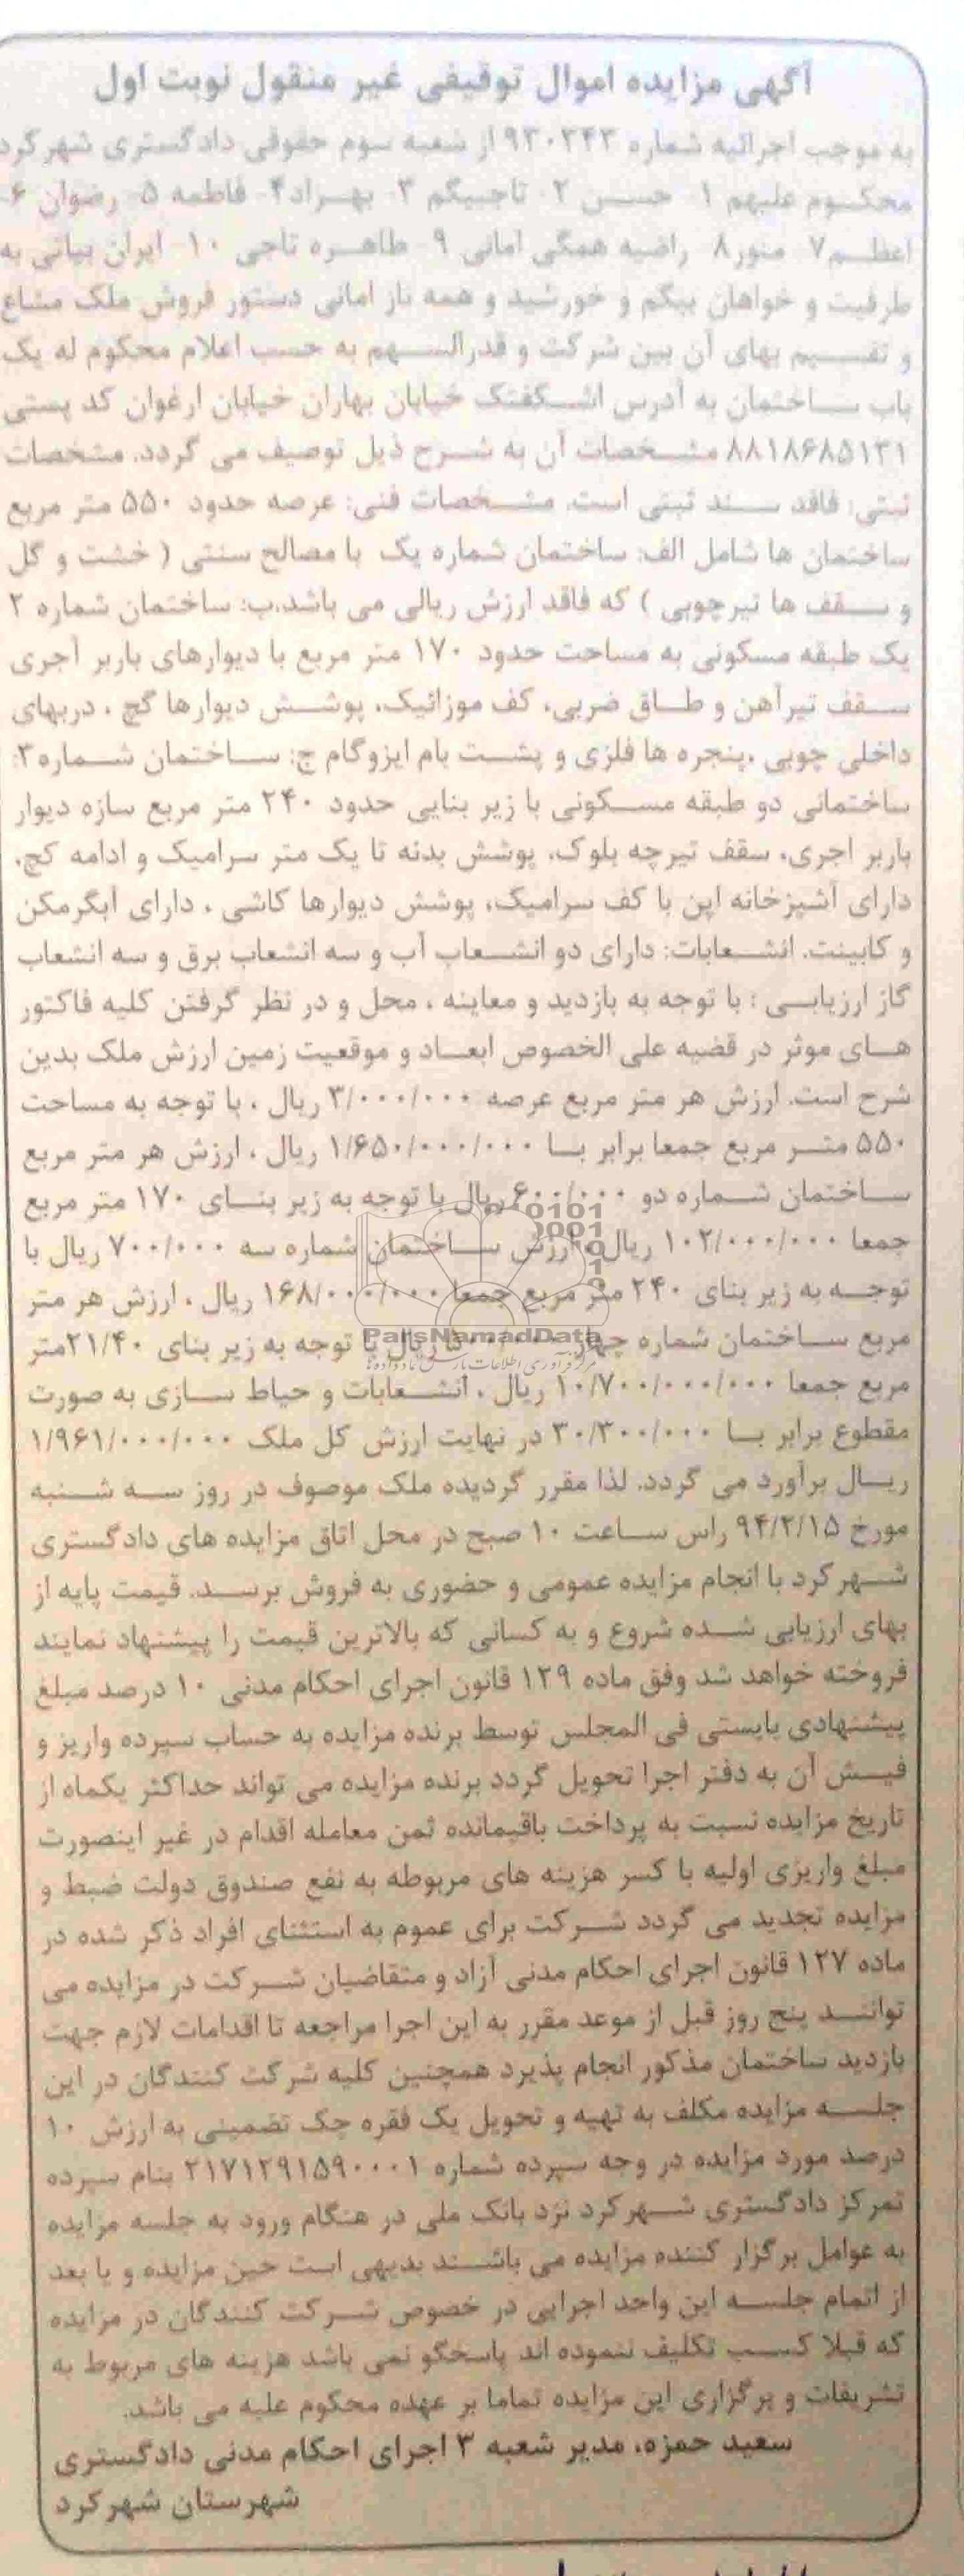 آگهی مزایده اموال توقیفی غیر منقول نوبت اول
به موجب اجرائیه شماره ۹۳۰۲۴۳ از شعبه سوم حقوقی دادگستری شهرکرد
محکوم علیهم ۱- حسن ۲- تاجبیگم ۳- بهزاد۴- فاطمه ۵- رضوان ۶-
اعظم۷- منور۸- راضیه همگی امانی ۹- طاهره تاجی ۱۰- ایران بیاتی به
طرفیت و خواهان بیگم و خورشید و همه ناز امانی دستور فروش ملک مشاع
و تقسیم بهای آن بین شرکت و قدرالسهم به حسب اعلام محکوم له یک
باب ساختمان به آدرس اشکفتک خیابان بهاران خیابان ارغوان کد پستی
۸۸۱۸۶۸۵۱۳۱ مشخصات آن به شرح ذیل توصیف می گردد. مشخصات
ثبتی: فاقد سند ثبتی است. مشخصات فنی: عرصه حدود ۵۵۰ متر مربع
ساختمان ها شامل الف: ساختمان شماره یک با مصالح سنتی ( خشت و گل
و سقف ها تیرچوبی ) که فاقد ارزش ریالی می باشد.ب: ساختمان شماره ۲
یک طبقه مسکونی به مساحت حدود ۱۷۰ متر مربع با دیوارهای باربر آجری
سقف تیرآهن و طاق ضربی، کف موزائیک، پوشش دیوارها گچ ، دربهای
داخلی چوبی ،پنجره ها فلزی و پشت بام ایزوگام ج: ساختمان شماره۳:
ساختمانی دو طبقه مسکونی با زیر بنایی حدود ۲۴۰ متر مربع سازه دیوار
باربر اجری، سقف تیرچه بلوک، پوشش بدنه تا یک متر سرامیک و ادامه کچ،
دارای آشپزخانه اپن با کف سرامیک، پوشش دیوارها کاشی ، دارای آبگرمکن
و کابینت. انشعابات: دارای دو انشعاب آب و سه انشعاب برق و سه انشعاب
گاز ارزیابی : با توجه به بازدید و معاینه ، محل و در نظر گرفتن کلیه فاکتور
های موثر در قضیه علی الخصوص ابعاد و موقعیت زمین ارزش ملک بدین
شرح است. ارزش هر متر مربع عرصه ۳/۰۰۰/۰۰۰ ریال ، با توجه به مساحت
۵۵۰ متر مربع جمعا برابر با ۱/۶۵۰/۰۰۰/۰۰۰ ریال ، ارزش هر متر مربع
ساختمان شماره دو ۶۰۰/۰۰۰ ریال با توجه به زیر بنای ۱۷۰ متر مربع
جمعا ۱۰۲/۰۰۰/۰۰۰ ریال ، ارزش ساختمان شماره سه ۷۰۰/۰۰۰ ریال با
توجه به زیر بنای ۲۴۰ متر مربع جمعا ۱۶۸/۰۰۰/۰۰۰ ریال ، ارزش هر متر
مربع ساختمان شماره چهار ریال با توجه به زیر بنای ۲۱/۴۰متر
ParsNamadData
مربع جمعا ۱۰/۷۰۰/۰۰۰/۰۰۰ ریال ، انشعابات و حیاط سازی به صورت
مقطوع برابر با ۳۰/۳۰۰/۰۰۰ در نهایت ارزش کل ملک ۱/۹۶۱/۰۰۰/۰۰۰
ریال برآورد می گردد. لذا مقرر گردیده ملک موصوف در روز سه شنبه
مورخ ۹۴/۲/۱۵ راس ساعت ۱۰ صبح در محل اتاق مزایده های دادگستری
شهرکرد با انجام مزایده عمومی و حضوری به فروش برسد. قیمت پایه از
بهای ارزیابی شده شروع و به کسانی که بالاترین قیمت را پیشنهاد نمایند
فروخته خواهد شد وفق ماده ۱۲۹ قانون اجرای احکام مدنی ۱۰ درصد مبلغ
پیشنهادی بایستی فی المجلس توسط برنده مزایده به حساب سپرده واریز و
فیش آن به دفتر اجرا تحویل گردد برنده مزایده می تواند حداکثر یکماه از
تاریخ مزایده نسبت به پرداخت باقیمانده ثمن معامله اقدام در غیر اینصورت
مبلغ واریزی اولیه با کسر هزینه های مربوطه به نفع صندوق دولت ضبط و
مزایده تجدید می گردد شرکت برای عموم به استثنای افراد ذکر شده در
ماده ۱۲۷ قانون اجرای احکام مدنی آزاد و متقاضیان شرکت در مزایده می
توانند پنج روز قبل از موعد مقرر به این اجرا مراجعه تا اقدامات لازم جهت
بازدید ساختمان مذکور انجام پذیرد همچنین کلیه شرکت کنندگان در این
جلسه مزایده مکلف به تهیه و تحویل یک فقره چک تضمینی به ارزش ۱۰
درصد مورد مزایده در وجه سپرده شماره ۲۱۷۱۲۹۱۵۹۰۰۰۱ بنام سپرده
تمرکز دادگستری شهرکرد نزد بانک ملی در هنگام ورود به جلسه مزایده
به عوامل برگزار کننده مزایده می باشند بدیهی است حین مزایده و یا بعد
از اتمام جلسه این واحد اجرایی در خصوص شرکت کنندگان در مزایده
که قبلا کسب تکلیف ننموده اند پاسخگو نمی باشد هزینه های مربوط به
تشریفات و برگزاری این مزایده تماما بر عهده محکوم علیه می باشد.
سعید حمزه، مدیر شعبه ۳ اجرای احکام مدنی دادگستری
شهرستان شهرکرد